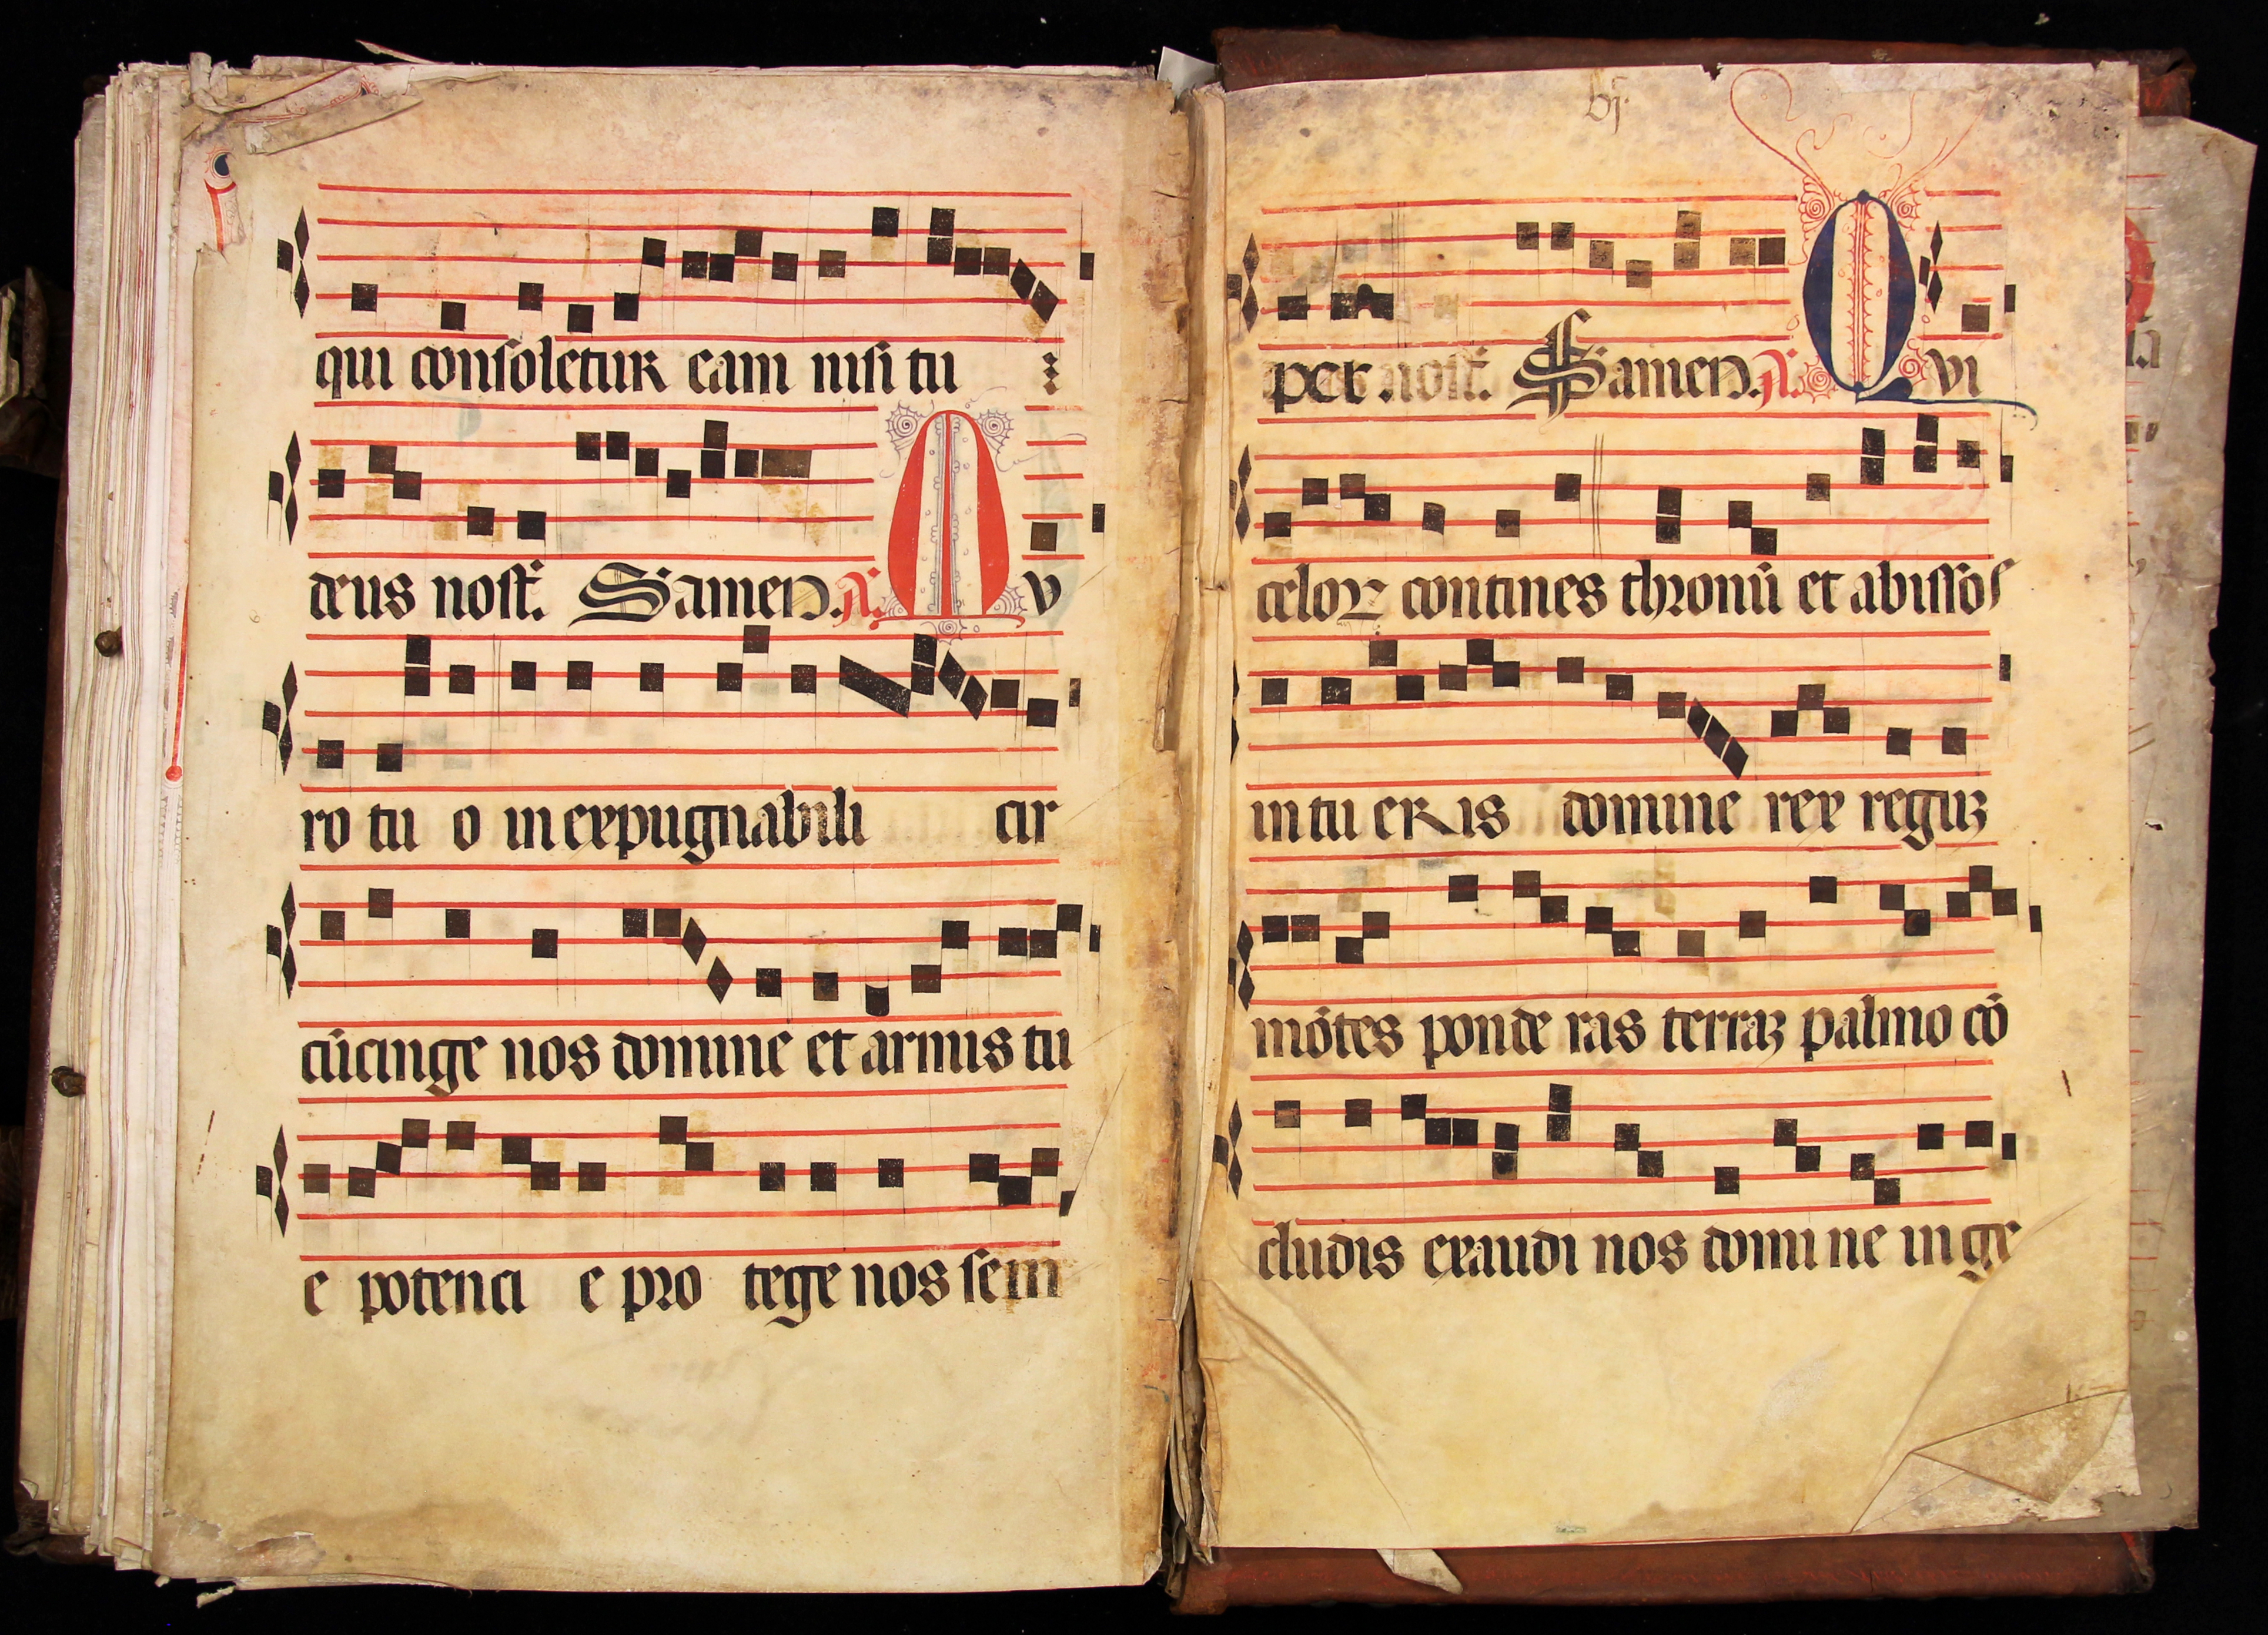 qui consoletur eam nisi tu
deus nost. Samen. A. M v
ro tu o inexpugnabili cir
cūcinge nos domine et armis tu
e potenci e pro tege nos sem
per nost. Samen. A. Q vi
celoꝝ contines thronū et abissos
intueris domine rex reguꝫ
mōtes ponde ras terraꝫ palmo cō
cludis exaudi nos domi ne in ge